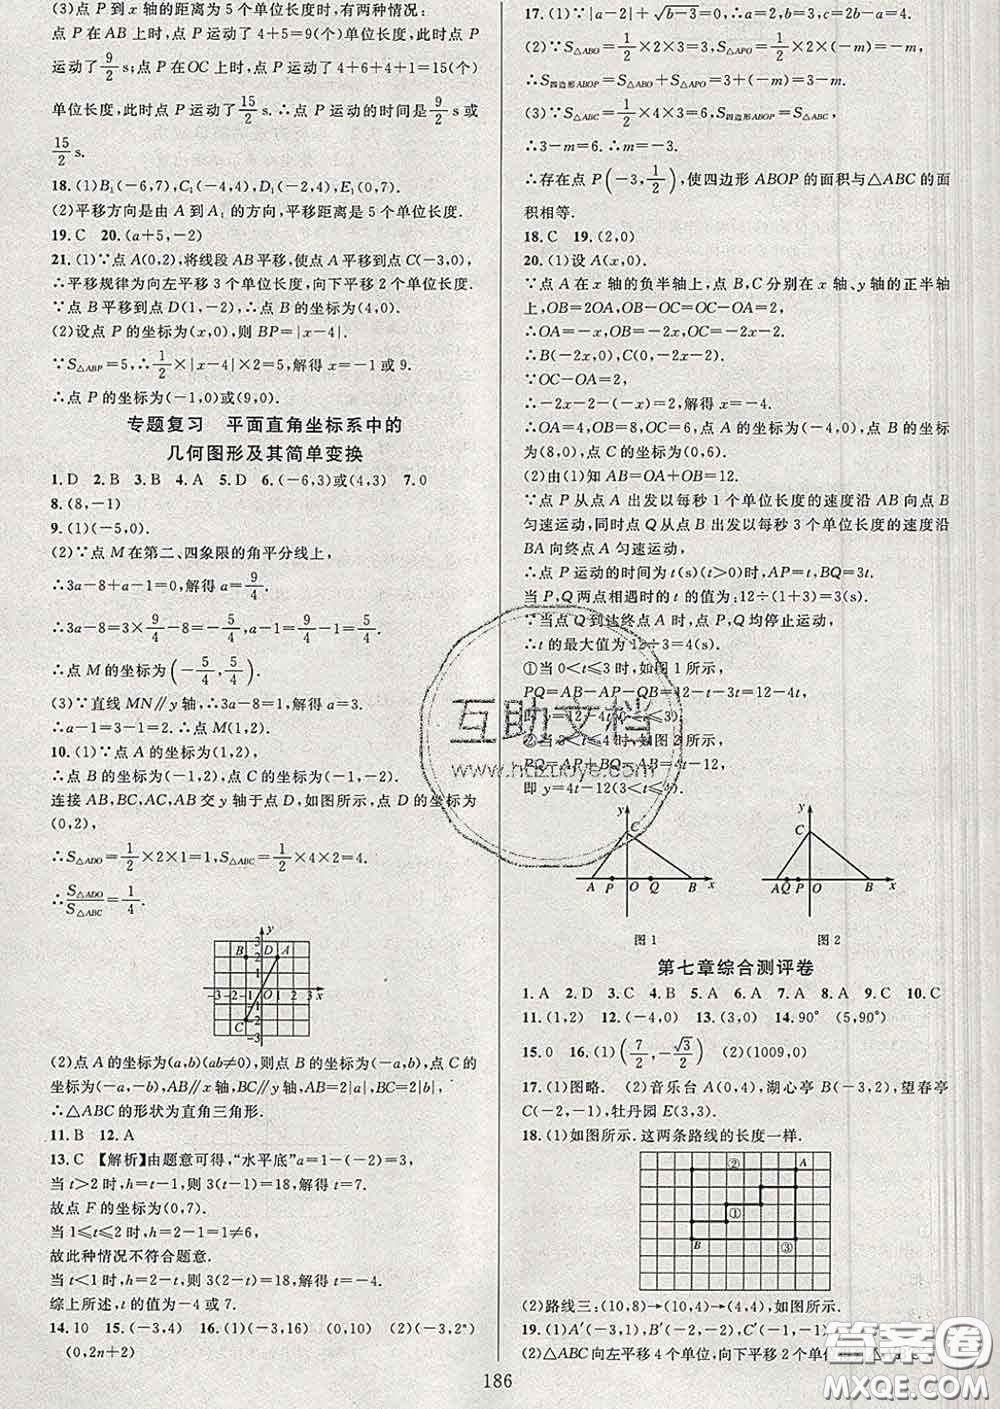 (3)点P到x轴的距离为5个单位长度时,有两种情况:
点P在AB上时,点P运动了4+5=9(个)单位长度,此时点P
运动了9/2 s;点P在OC上时,点P运动了4+6+4+1=15(个)
单位长度,此时点P运动了15/2 s.∴点P运动的时间是9/2 s或
15/2 s.
18.(1)B₁(-6,7),C₁(-4,4),D₁(-2,4),E₁(0,7).
(2)平移方向是由A到A₁的方向,平移距离是5个单位长度.
19.C 20.(a+5,-2)
21.(1)∵点A(0,2),将线段AB平移,使点A平移到点C(-3,0),
∴平移规律为向左平移3个单位长度,向下平移2个单位长度.
∵点B平移到点D(1,-2),∴点B的坐标为(4,0).
(2)设点P的坐标为(x,0),则BP=|x-4|.
∵S△ABP=5,∴1/2×|x-4|×2=5,解得x=-1或9.
∴点P的坐标为(-1,0)或(9,0).
专题复习 平面直角坐标系中的
几何图形及其简单变换
1.D 2.B 3.B 4.A 5.D 6.(-6,3)或(4,3) 7.0
8.(8,-1)
9.(1)(-5,0).
(2)∵点M在第二、四象限的角平分线上,
∴3a-8+a-1=0,解得a=9/4.
∴3a-8=3×9/4-8=-5/4,a-1=9/4-1=5/4.
∴点M的坐标为(-5/4,5/4).
(3)∵直线MN∥y轴,∴3a-8=1.∴a=3.
∴a-1=3-1=2.∴点M(1,2).
10.(1)∵点A的坐标为(1,2),
∴点B的坐标为(-1,2),点C的坐标为(-1,-2).
连接AB,BC,AC,AB交y轴于点D,如图所示,点D的坐标为
(0,2),
∴S△ADO=1/2×2×1=1,S△ABC=1/2×4×2=4.
∴S△ADO/S△ABC=1/4.
y 3 B 2 D A 1 -3 -2 -1 O 1 2 3 x -1 C -2 -3
(2)点A的坐标为(a,b)(ab≠0),则点B的坐标为(-a,b),点C的
坐标为(-a,-b),AB∥x轴,BC∥y轴,AB=2|a|,BC=2|b|,
∴△ABC的形状为直角三角形.
11.B 12.A
13.C 【解析】由题意可得,“水平底”a=1-(-2)=3,
当t>2时,h=t-1,则3(t-1)=18,解得t=7.
故点F的坐标为(0,7).
当1≤t≤2时,h=2-1=1≠6,
故此种情况不符合题意.
当t<1时,h=2-t,则3(2-t)=18,解得t=-4.
综上所述,t的值为-4或7.
14.10 15.(-3,4) 16.(1)(-3,16) (0,10) (2)(-3,2ⁿ)
(0,2n+2)
17.(1)∵|a-2|+√(b-3)=0,∴a=2,b=3,c=2b-a=4.
(2)∵S△ABO=1/2×2×3=3,S△APO=1/2×2×(-m)=-m,
∴S四边形ABOP=S△ABO+S△APO=3+(-m)=3-m.
(3)∵S△ABC=1/2×4×3=6,S四边形ABOP=S△ABC,
∴3-m=6.∴m=-3.
∴存在点P(-3,1/2),使四边形ABOP的面积与△ABC的面
积相等.
18.C 19.(2,0)
20.(1)设A(x,0).
∵点A在x轴的负半轴上,点B,C分别在x轴、y轴的正半轴
上,OB=2OA,OB-OC=OC-OA=2,
∴OA=-x,OB=-2x,OC=-2x-2.
∴B(-2x,0),C(0,-2x-2).
∵OC-OA=2,
∴-2x-2-(-x)=2,解得x=-4.
∴OA=4,OB=8,OC=6.
∴点A的坐标为(-4,0),点B的坐标为(8,0),点C的坐标为(0,6).
(2)由(1)知AB=OA+OB=12.
∵点P从点A出发以每秒1个单位长度的速度沿AB向点B
匀速运动,同时点Q从点B出发以每秒3个单位长度的速度沿
BA向终点A匀速运动,
∴点P运动的时间为t(s)(t>0)时,AP=t,BQ=3t.
当P,Q两点相遇时的t的值为:12÷(1+3)=3(s).
∵当点Q到达终点A时,点P,Q均停止运动,
∴t的最大值为12÷3=4(s).
①当0<t≤3时,如图1所示,
PQ=AB-AP-BQ=12-t-3t=12-4t,
即y=12-4t(0<t≤3).
②当3<t≤4时,如图2所示,
PQ=AP+BQ-AB=t+3t-12=4t-12,
即y=4t-12(3<t≤4).
y C A P O Q B x
图1
y C A Q P O B x
图2
第七章综合测评卷
1.A 2.D 3.C 4.B 5.C 6.B 7.A 8.A 9.C 10.C
11.(1,2) 12.(-4,0) 13.(3,0) 14.90° (5,90°)
15.0 16.(1)(7/2,-√3/2) (2)(1009,0)
17.(1)图略. (2)音乐台A(0,4),湖心亭B(-3,2),望春亭
C(-2,-1),牡丹园E(3,3).
18.(1)如图所示.这两条路线的长度一样.
② A ① B ③
(2)路线三:(10,8)→(10,4)→(4,4),如图所示.
19.(1)A′(-3,1),B′(-2,-2),C′(-1,-1).
(2)△ABC向左平移4个单位,向下平移2个单位
186
互助文档
www.hdzuoye.com
答案圈
MXQE.COM